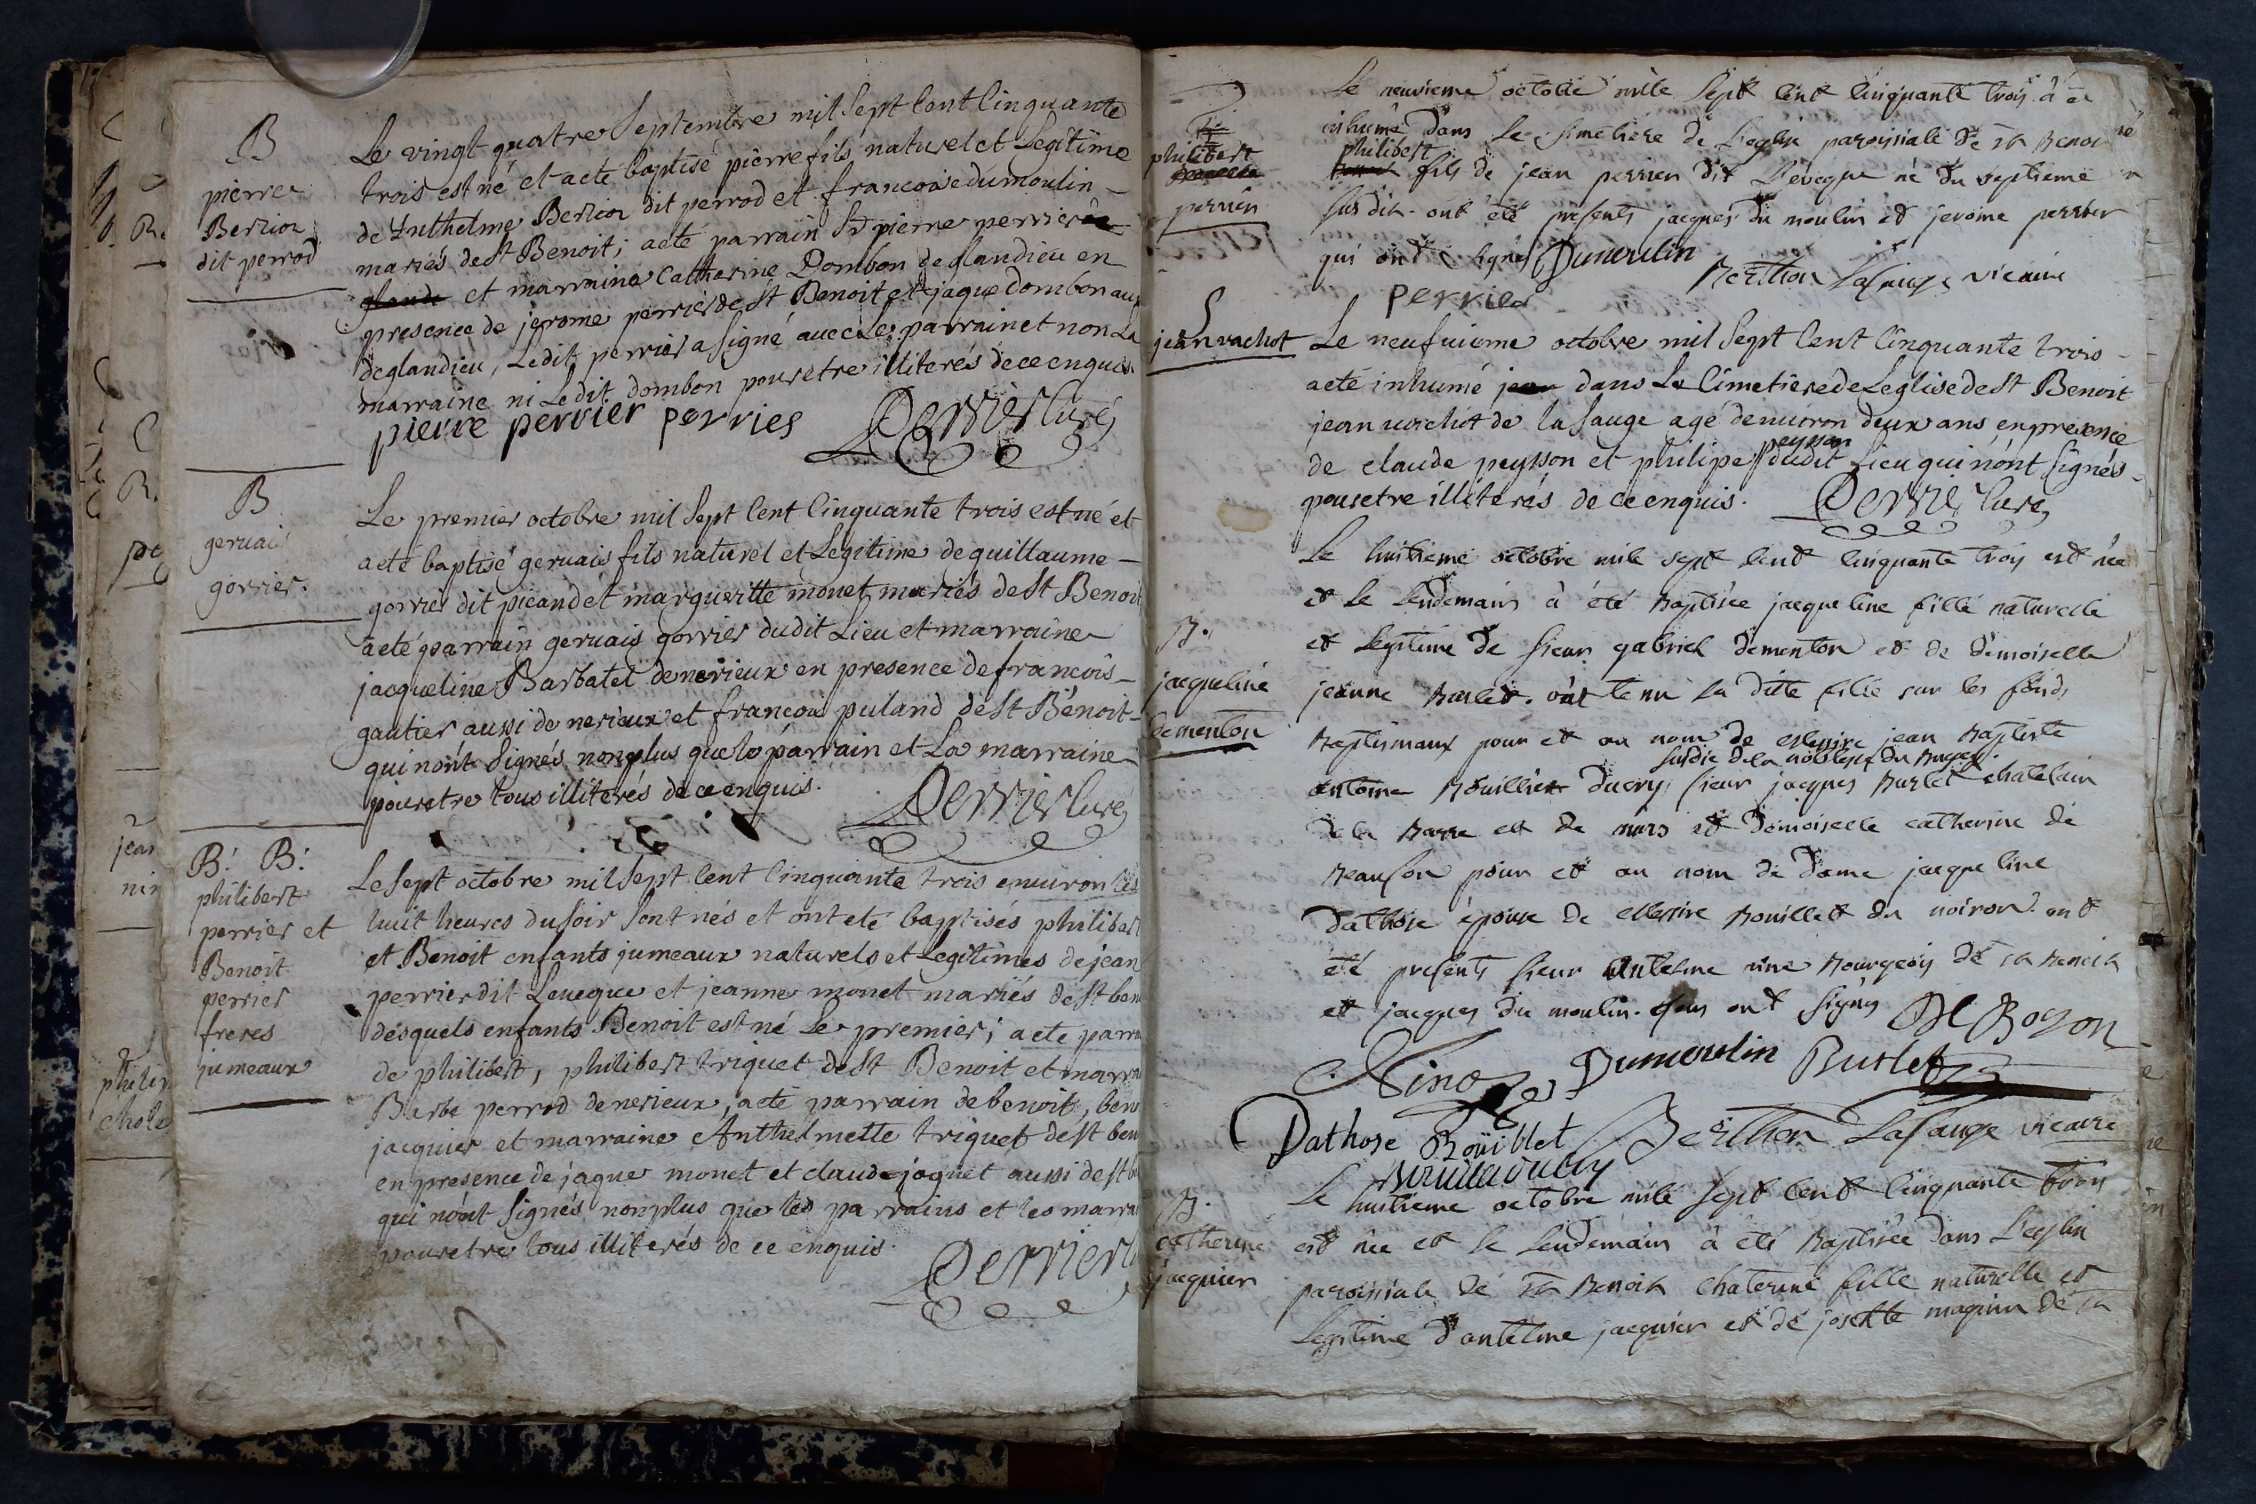 B
pierre
Berlion
dit perrod
Le vingt quatre Septembre mil Sept Cent Cinquante
trois est né et aeté baptisé pierre fils naturel et Legitime
de Anthelme Berlion dit perrod et francoise dumoulin
mariés de St Benoit; aeté parrain Sr pierre perrier
et marraine Catherine Dombon de glandieu en
presence de jerome perrier de St Benoit et jaque dombon aussi
deglandieu, Ledit perrier a signé avec Le parrain et non La
marraine ni Ledit dombon pour etre illiterés de ce enquis
pierre pervier perries Perrier Curé
B
gervais
gorrier.
Le premier octobre mil Sept Cent Cinquante trois est né et
aeté baptisé gervais fils naturel et Legitime de guillaume
gorrier dit picand et margueritte monet mariés de St Benoit
aeté parrain gervais gorrier dudit Lieu et marraine
jacqueline Barbatet de nerieux en presence de francois
gautier aussi de nerieux et francois puland de St Benoit
qui nónt Signés nonplus que le parrain et La marraine
pour etre tous illiterés de ce enquis.
Perrier Curé
B. B.
philibert
perrier et
Benoit
perrier
freres
jumeaux
Le Sept octobre mil Sept Cent Cinquante trois environ les
huit heures du Soir Sont nés et ont eté baptisés philibert
et Benoit enfants jumeaux naturels et Legitimes de jean
perrier dit Leveque et jeanne monet mariés de St ben
desquels enfants Benoit est né Le premier; aeté parra
de philibert, philibert triquet de St Benoit et marra
Barbe perrod de nerieux, aeté parrain de benoit, beno
jacquier et marraine Anthelmette triquet de St ben
en presence de jaque monet et claude joquet aussi de St b
qui nónt Signés nonplus que les parrains et les marra
pour etre tous illiterés de ce enquis.
Perrier
philibert
perrier
Le neuvieme octobre mile Sept cent cinquante trois à é
inhumé dans Le Simetiere de L'eglise paroissiale de St Benoi
philibert
fils de jean perrier dit L'eveque né du septieme
Susdit. ont été presents jacques du moulin et jerome perrier
qui ont Signés Dumoulin
perrier Berthon Lasauge vicaire
jean vachot
Le neufvieme octobre mil Sept Cent Cinquante trois
aeté inhumé dans Le Cimetiere de Leglise de St Benoit
jean vachot de la Sauge agé denviron deux ans en presence
peysson
de claude peysson et philipe dudit Lieu qui nónt Signés
pour etre illiterés de ce enquis. Perrier Curé
B.
jacqueline
dementon
Le huitieme octobre mile sept cent cinquante trois est née
et le lendemain à été Baptisée jacqueline fille naturelle
et legitime de Sieur gabriel dementon et de demoiselle
jeanne Burlet. ont tenu la ditte fille sur les fonds
Baptismaux pour et au nom de Messire jean Baptiste
de la noblesse du Bugey
antoine Bouillier Sieur jacques Burlet chatelain
de la Barre et de mers et demoiselle catherine de
pour et au nom de dame jacqueline
dathose épouse de Messire Bouillet du noiron. ont
été presents Sieur Antelme nine Bourgeois de St Benoit
et jacques du moulin. ont Signés De Boyon
Nino Dumoulin Burlet
Dathose Boüillet Berthon Lasauge vicaire
B.
catherine
jacquier
Le huitieme octobre mile Sept Cent Cinquante trois
est née et le lendemain à été Baptisée dans L'eglise
paroissiale de St Benoit Chaterine fille naturelle et
Legitime d'antelme jacquier et de josette magnin de St